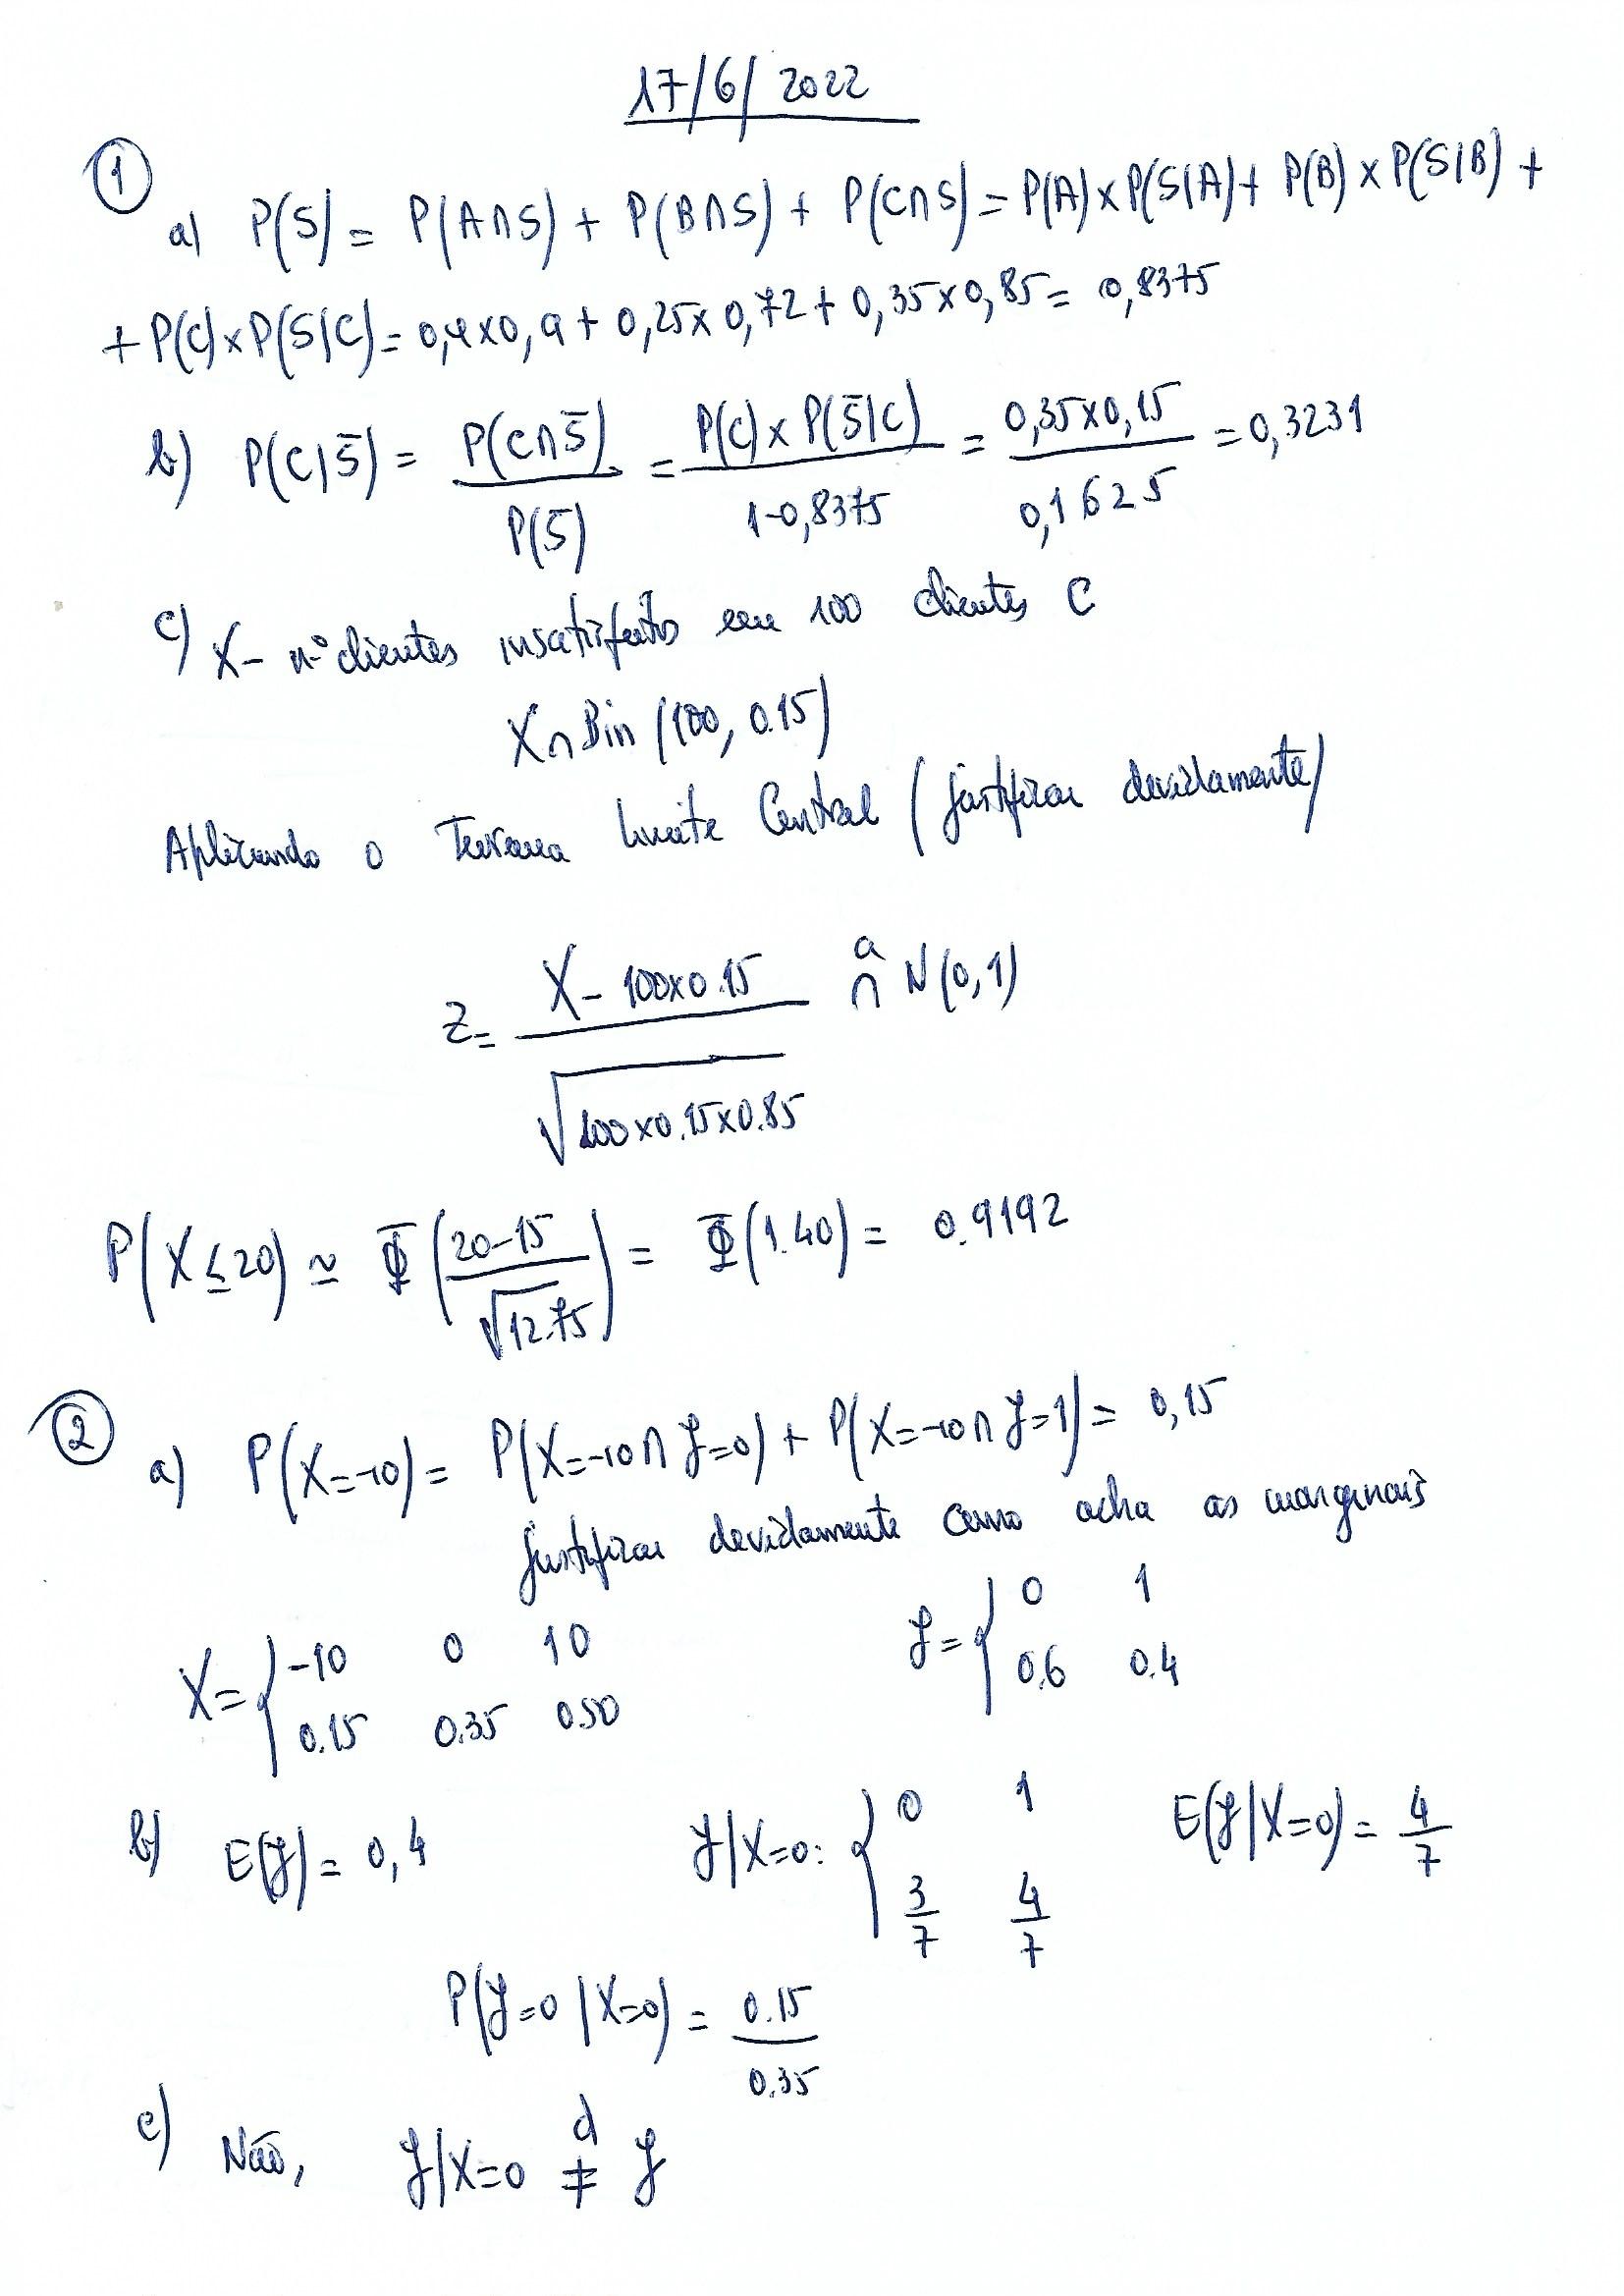 17/6/2022
①
a) P(S) = P(A∩S) + P(B∩S) + P(C∩S) = P(A)×P(S|A) + P(B)×P(S|B) +
+ P(C)×P(S|C) = 0,4×0,9 + 0,25×0,72 + 0,35×0,85 = 0,8375
b) P(C|S̄) = P(C∩S̄)/P(S̄) = P(C)×P(S̄|C)/1-0,8375 = 0,35×0,15/0,1625 = 0,3231
c) X - nº clientes insatisfeitos em 100 clientes C
X∩Bin (100, 0.15)
Aplicando o Teorema Limite Central (justificar devidamente)
Z = X - 100×0.15/√100×0.15×0.85 ∩ᵃ N(0,1)
P(X≤20) ≃ Φ(20-15/√12.75) = Φ(1.40) = 0.9192
②
a) P(X=-10) = P(X=-10∩Y=0) + P(X=-10∩Y=1) = 0,15
justificar devidamente como acha as marginais
X = { -10 0 10 Y = { 0 1
0.15 0.35 0.50 0.6 0.4
b) E(Y) = 0,4 Y|X=0: { 0 1 E(Y|X=0) = 4/7
3/7 4/7
P(Y=0|X=0) = 0.15/0.35
c) Não, Y|X=0 ≠ᵈ Y